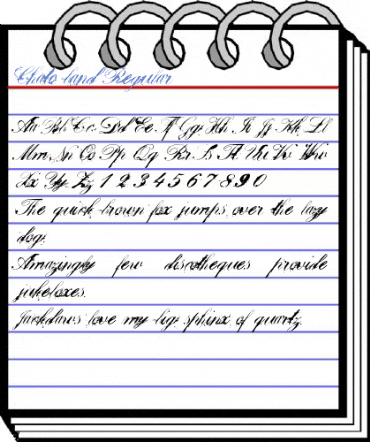 Chalo land Regular
Aa Bb Cc Dd Ee Ff Gg Hh Ii Jj Kk Ll
Mm Nn Oo Pp Qq Rr Ss Tt Uu Vv Ww
Xx Yy Zz 1 2 3 4 5 6 7 8 9 0
The quick brown fox jumps over the lazy
dog.
Amazingly few discotheques provide
jukeboxes.
Jackdaws love my big sphinx of quartz.